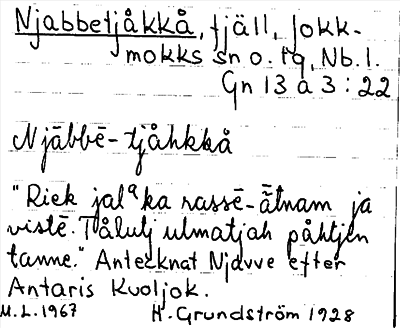 Njabbetjåkkå, fjäll, Jokk-
mokks sn o. tg, Nb. l.
Gn 13 a 3 : 22
Njābbē-tjåhkkå
"Riek jalᵃka rassē-ātnam ja
vistē. Tålutj ulmatjah påhtjen
tanne." Antecknat Njavve efter
Antaris Kuoljok.
M.L. 1967 H. Grundström 1928